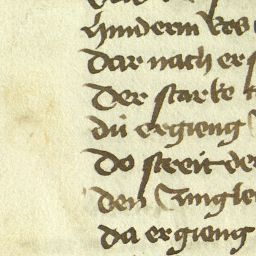 hinderm kos
dar nach er
der starke
dú ergieng
do streit de
den Jungle
da ergieng